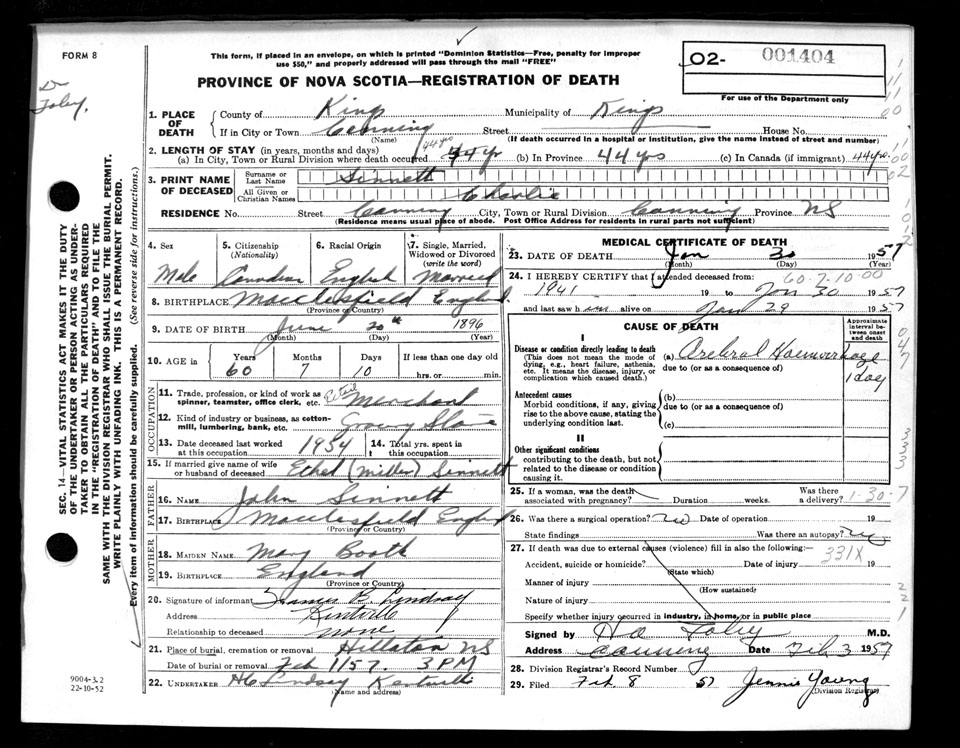 FORM 8
This form, if placed in an envelope, on which is printed "Dominion Statistics—Free, penalty for improper
use $50," and properly addressed will pass through the mail "FREE"
PROVINCE OF NOVA SCOTIA—REGISTRATION OF DEATH
O2- 001404
For use of the Department only
Dr
Foley.
SEC. 14—VITAL STATISTICS ACT MAKES IT THE DUTY
OF THE UNDERTAKER OR PERSON ACTING AS UNDER-
TAKER TO OBTAIN ALL THE PARTICULARS REQUIRED
IN THE "REGISTRATION OF DEATH" AND TO FILE THE
SAME WITH THE DIVISION REGISTRAR WHO SHALL ISSUE THE BURIAL PERMIT.
WRITE PLAINLY WITH UNFADING INK. THIS IS A PERMANENT RECORD.
Every item of information should be carefully supplied. (See reverse side for instructions.)
1. PLACE OF DEATH County of Kings Municipality of Kings
If in City or Town Canning Street House No.
(Name) (If death occurred in a hospital or institution, give the name instead of street and number)
2. LENGTH OF STAY (in years, months and days) 44 yrs
(a) In City, Town or Rural Division where death occurred 44 yr (b) In Province 44 yrs (c) In Canada (if immigrant) 44 yrs.
3. PRINT NAME OF DECEASED Surname or Last Name Sinnett
All Given or Christian Names Charlie
RESIDENCE No. Street Canning City, Town or Rural Division Canning Province NS
(Residence means usual place of abode. Post Office Address for residents in rural parts not sufficient)
4. Sex 5. Citizenship (Nationality) 6. Racial Origin 7. Single, Married, Widowed or Divorced (write the word)
Male Canadian English Married
8. BIRTHPLACE Macclesfield England.
(Province or Country)
9. DATE OF BIRTH June 20th 1896
(Month) (Day) (Year)
10. AGE in Years Months Days If less than one day old
60 7 10 hrs. or min.
OCCUPATION
11. Trade, profession, or kind of work as spinner, teamster, office clerk, etc. Retail Merchant
12. Kind of industry or business, as cotton-mill, lumbering, bank, etc. Grocery Store
13. Date deceased last worked at this occupation 1954 14. Total yrs. spent in this occupation
15. If married give name of wife or husband of deceased Ethel (Miller) Sinnett
FATHER
16. NAME John Sinnett
17. BIRTHPLACE Macclesfield England
(Province or Country)
MOTHER
18. MAIDEN NAME Mary Booth
19. BIRTHPLACE England
(Province or Country)
20. Signature of informant Francis B. Lindsay
Address Kentville
Relationship to deceased none
21. Place of burial, cremation or removal Hillaton NS
Date of burial or removal Feb 1/57. 3 PM
22. UNDERTAKER HC Lindsay Kentville
(Name and address)
9004-3.2
22-10-52
MEDICAL CERTIFICATE OF DEATH
23. DATE OF DEATH Jan 30 1957
(Month) (Day) (Year)
24. I HEREBY CERTIFY that I attended deceased from: 60-7-10-00
1941 19 to Jan 30 1957
and last saw h im alive on Jan 29 1957
CAUSE OF DEATH
Approximate interval between onset and death
I
Disease or condition directly leading to death
(This does not mean the mode of dying, e.g., heart failure, asthenia, etc. It means the disease, injury, or complication which caused death.)
(a) Cerebral Haemorrhage 1 day
due to (or as a consequence of)
Antecedent causes
Morbid conditions, if any, giving rise to the above cause, stating the underlying condition last.
(b)
due to (or as a consequence of)
(c)
II
Other significant conditions
contributing to the death, but not related to the disease or condition causing it.
25. If a woman, was the death associated with pregnancy? Duration weeks. Was there a delivery? 1-30-7
26. Was there a surgical operation? no Date of operation 19
State findings Was there an autopsy? no
27. If death was due to external causes (violence) fill in also the following:—
Accident, suicide or homicide? Date of injury 19
(State which)
331X
Manner of injury
(How sustained)
Nature of injury
Specify whether injury occurred in industry, in home, or in public place
Signed by H A Foley M.D.
Address Canning Date Feb 3 1957
28. Division Registrar's Record Number
29. Filed Feb. 8 57 Jennie Young
(Division Registrar)